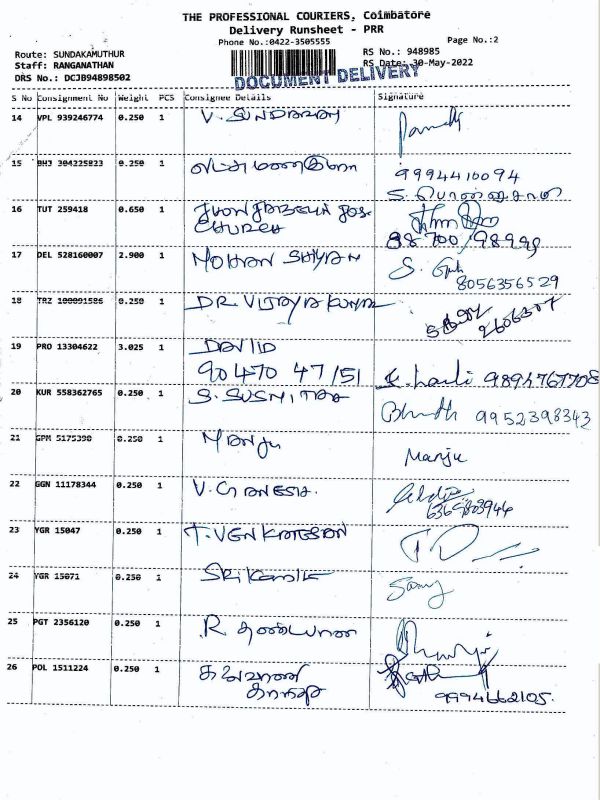 THE PROFESSIONAL COURIERS, Coimbatore
Delivery Runsheet - PRR
Phone No.:0422-3505555 Page No.:2
Route: SUNDAKAMUTHUR RS No.: 948985
Staff: RANGANATHAN RS Date: 30-May-2022
DRS No.: DCJB94898502 DOCUMENT DELIVERY
S No Consignment No Weight PCS Consignee Details Signature
14 VPL 939246774 0.250 1 V. SUNDARAM
15 BHJ 304225823 0.250 1 9994410094
16 TUT 259418 0.650 1
CHURCH 98999
17 DEL 528160007 2.900 1 MOHAN SHYAM
8056356529
18 TRZ 100091586 0.250 1 DR. VIJAYA KUMAR
19 PRO 13304622 3.025 1 DAVID
90470 47151 9894767708
20 KUR 558362765 0.250 1 S. SUSMITAA 9952398343
21 GPM 5175390 0.250 1 Manju Manju
22 GGN 11178344 0.250 1 V. GANESH.
6369803944
23 YGR 15047 0.250 1 T. VENKATESAN
24 YGR 15071 0.250 1 Srikanth
25 PGT 2356120 0.250 1 R
26 POL 1511224 0.250 1
9994662105.